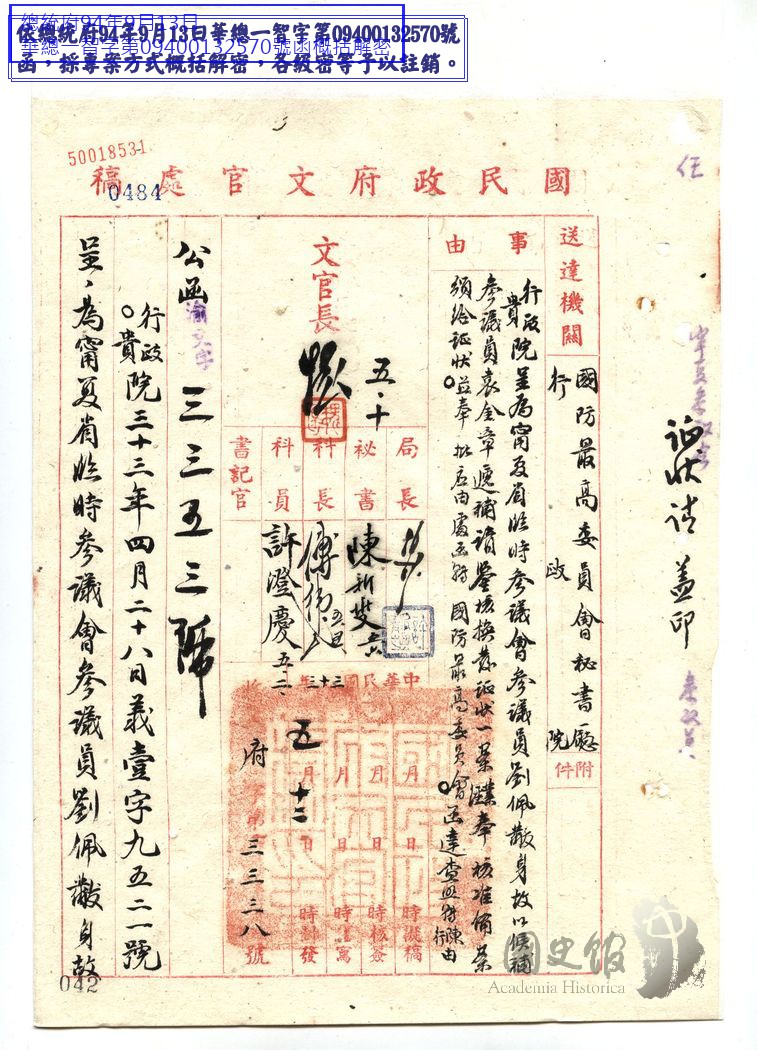 總統府94年9月13日
華總一智字第09400132570號函概括解密
依總統府94年9月13日華總一智字第09400132570號
函，採專案方式概括解密，各級密等予以註銷。
50018531
0484
國民政府文官處稿
任
證狀請蓋印
送達機關
國防最高委員會秘書廳
行政院
附件
事由
行政院呈為甯夏省臨時參議會參議員劉佩黻身故以候補
參議員袁金章遞補請鑒核換發證狀一案經奉核准備案
頒給證狀。並奉批
國防最高委員會。函達查照
文官長
五、十
局長
秘書
科長
科員
書記官
陳新燮
許澄慶
五、二
中華民國三十三年
五月十二日
月日時擬稿
月日時核簽
月日時繕寫
月日時封發
府字第三三三八號
公函
渝文字
三三五三號
行政
貴院三十三年四月二十八日義壹字九五二一號
呈、為甯夏省臨時參議會參議員劉佩黻身故
042
國史館
Academia Historica